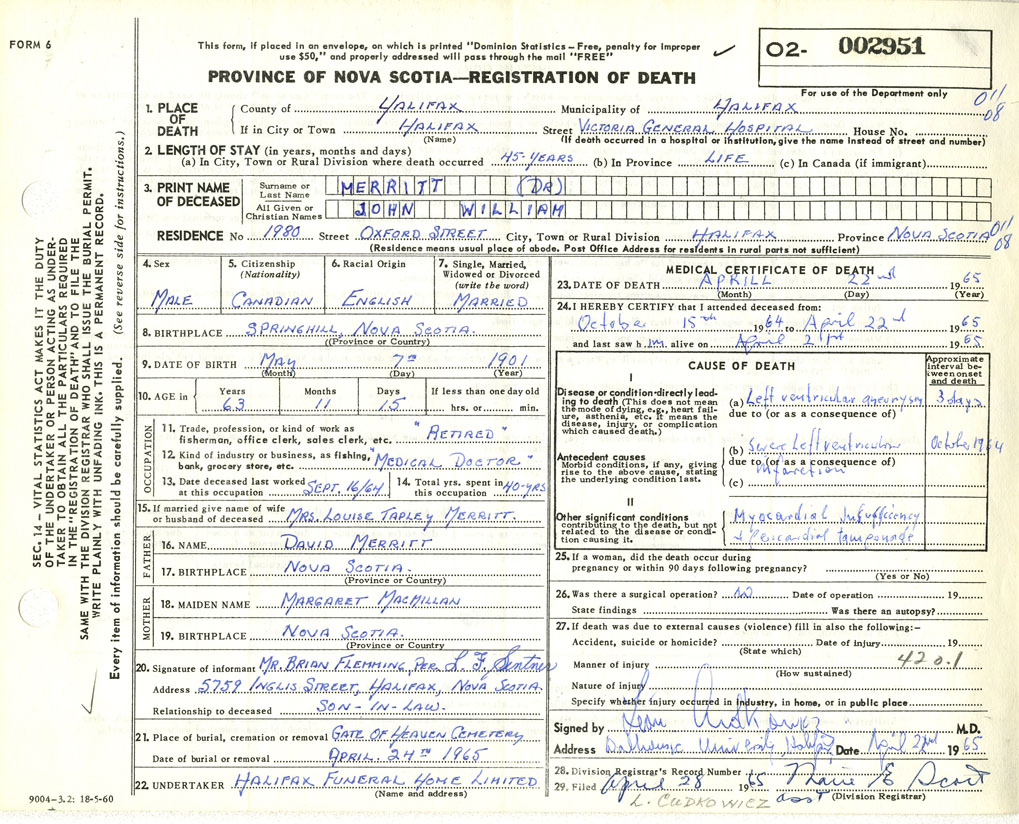 FORM 6
This form, if placed in an envelope, on which is printed "Dominion Statistics – Free, penalty for improper
use $50," and properly addressed will pass through the mail "FREE"
PROVINCE OF NOVA SCOTIA—REGISTRATION OF DEATH
O2- 002951
For use of the Department only
011
08
1. PLACE OF DEATH
County of HALIFAX Municipality of HALIFAX
If in City or Town HALIFAX Street VICTORIA GENERAL HOSPITAL House No.
(Name) (If death occurred in a hospital or institution, give the name instead of street and number)
2. LENGTH OF STAY (in years, months and days)
(a) In City, Town or Rural Division where death occurred 45-YEARS (b) In Province LIFE (c) In Canada (if immigrant)
3. PRINT NAME OF DECEASED
Surname or Last Name MERRITT (DR)
All Given or Christian Names JOHN WILLIAM
RESIDENCE No 1980 Street OXFORD STREET City, Town or Rural Division HALIFAX Province NOVA SCOTIA
011
08
(Residence means usual place of abode. Post Office Address for residents in rural parts not sufficient)
4. Sex
MALE
5. Citizenship
(Nationality)
CANADIAN
6. Racial Origin
ENGLISH
7. Single, Married,
Widowed or Divorced
(write the word)
MARRIED
8. BIRTHPLACE SPRINGHILL, NOVA SCOTIA.
(Province or Country)
9. DATE OF BIRTH MAY 7TH 1901
(Month) (Day) (Year)
10. AGE in
Years Months Days If less than one day old
63 11 15 hrs. or min.
OCCUPATION
11. Trade, profession, or kind of work as
fisherman, office clerk, sales clerk, etc. "RETIRED"
12. Kind of industry or business, as fishing,
bank, grocery store, etc. "MEDICAL DOCTOR"
13. Date deceased last worked
at this occupation SEPT. 16/64
14. Total yrs. spent in
this occupation 40-YRS
15. If married give name of wife
or husband of deceased MRS. LOUISE TAPLEY MERRITT.
FATHER
16. NAME DAVID MERRITT
17. BIRTHPLACE NOVA SCOTIA.
(Province or Country)
MOTHER
18. MAIDEN NAME MARGARET MACMILLAN
19. BIRTHPLACE NOVA SCOTIA.
(Province or Country
20. Signature of informant MR. BRIAN FLEMMING, PER L. F.
Address 5759 INGLIS STREET, HALIFAX, NOVA SCOTIA.
Relationship to deceased SON-IN-LAW.
21. Place of burial, cremation or removal GATE OF HEAVEN CEMETERY
Date of burial or removal APRIL. 24TH 1965
22. UNDERTAKER HALIFAX FUNERAL HOME LIMITED
(Name and address)
MEDICAL CERTIFICATE OF DEATH
23. DATE OF DEATH APRILL 22nd 1965
(Month) (Day) (Year)
24. I HEREBY CERTIFY that I attended deceased from:
October 15th 1964 to April 22nd 1965
and last saw him alive on April 21st 1965
CAUSE OF DEATH
Approximate
interval be-
tween onset
and death
I
Disease or condition directly lead-
ing to death (This does not mean
the mode of dying, e.g., heart fail-
ure, asthenia, etc. It means the
disease, injury, or complication
which caused death.)
(a) Left ventricular aneurysm 3 days
due to (or as a consequence of)
Antecedent causes
Morbid conditions, if any, giving
rise to the above cause, stating
the underlying condition last.
(b) Severe Left ventricular October 1964
due to (or as a consequence of)
infarction
(c)
II
Other significant conditions
contributing to the death, but not
related to the disease or condi-
tion causing it.
Myocardial Insufficiency
+ Pericardial tamponade
25. If a woman, did the death occur during
pregnancy or within 90 days following pregnancy?
(Yes or No)
26. Was there a surgical operation? NO Date of operation 19
State findings Was there an autopsy?
27. If death was due to external causes (violence) fill in also the following:-
Accident, suicide or homicide? Date of injury 19
(State which)
420.1
Manner of injury
(How sustained)
Nature of injury
Specify whether injury occurred in industry, in home, or in public place
Signed by Leon Cudkowicz M.D.
Address Dalhousie University Halifax Date April 22nd 1965
28. Division Registrar's Record Number
29. Filed April 28 1965 Marie E Scott
asst (Division Registrar)
L. CUDKOWICZ
9004-3.2: 18-5-60
SEC. 14 – VITAL STATISTICS ACT MAKES IT THE DUTY
OF THE UNDERTAKER OR PERSON ACTING AS UNDER-
TAKER TO OBTAIN ALL THE PARTICULARS REQUIRED
IN THE "REGISTRATION OF DEATH" AND TO FILE THE
SAME WITH THE DIVISION REGISTRAR WHO SHALL ISSUE THE BURIAL PERMIT.
WRITE PLAINLY WITH UNFADING INK. THIS IS A PERMANENT RECORD.
Every item of information should be carefully supplied. (See reverse side for instructions.)